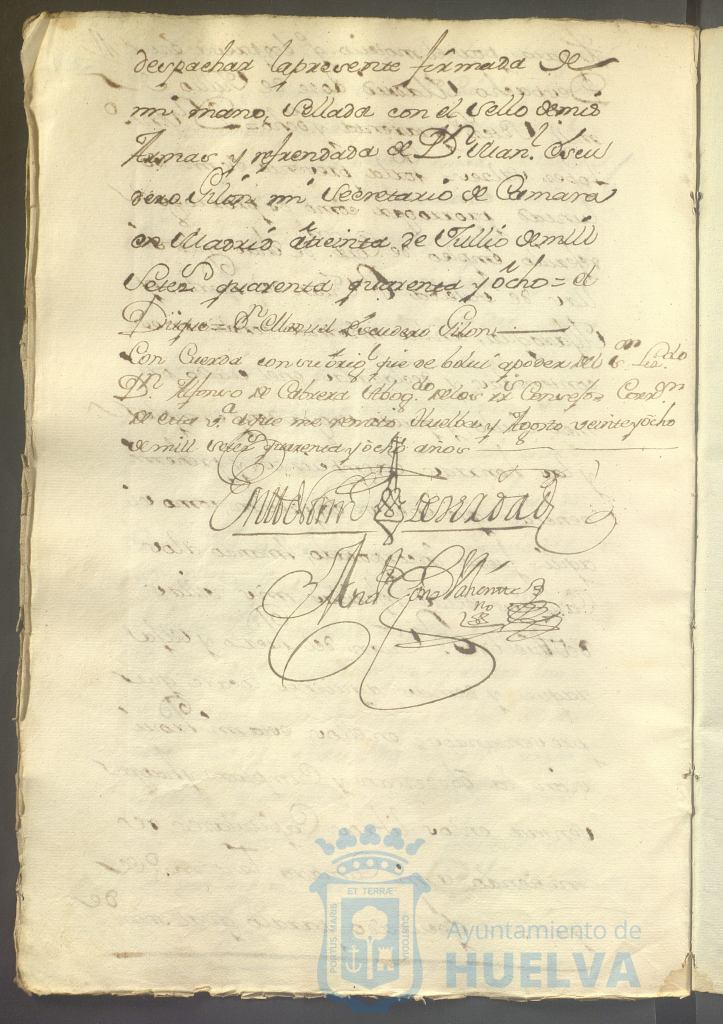 despachar lapresente firmada de
mi mano, Sellada con el Sello demis
Armas y refrendada de Dn. Man.l Escu
dero Gilon mi Secretario de Camara
en Madrid à treinta de Jullio demill
Setez.s quarenta quarenta y ocho = el
Duque = Dn. Manuel Escudero Gilon
Con Cuerda con su orig.l que de bolui apoder del s.or Liz.do
Dn. Alfonso de Cabrera Abog.do delos R.s Consejos Corr.or
de esta v.a aque me remito Huelba y Agosto veinte y ocho
de mill setez.s quarenta y ocho años
ET TERRÆ
PORTUS MARIS
CUSTODIA
Ayuntamiento de
HUELVA